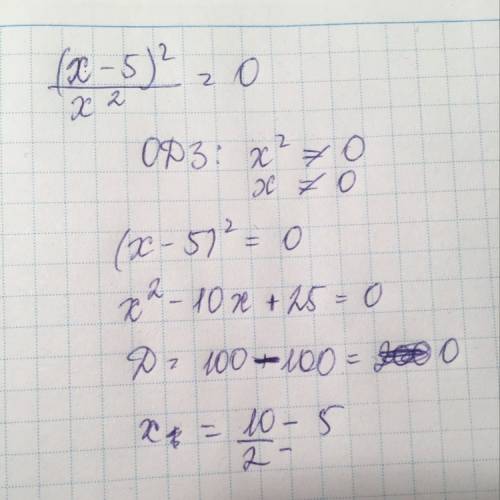 (x - 5)² / x² = 0
ОДЗ: x² ≠ 0
x ≠ 0
(x - 5)² = 0
x² - 10x + 25 = 0
Д = 100 - 100 = 0
x = 10/2 = 5